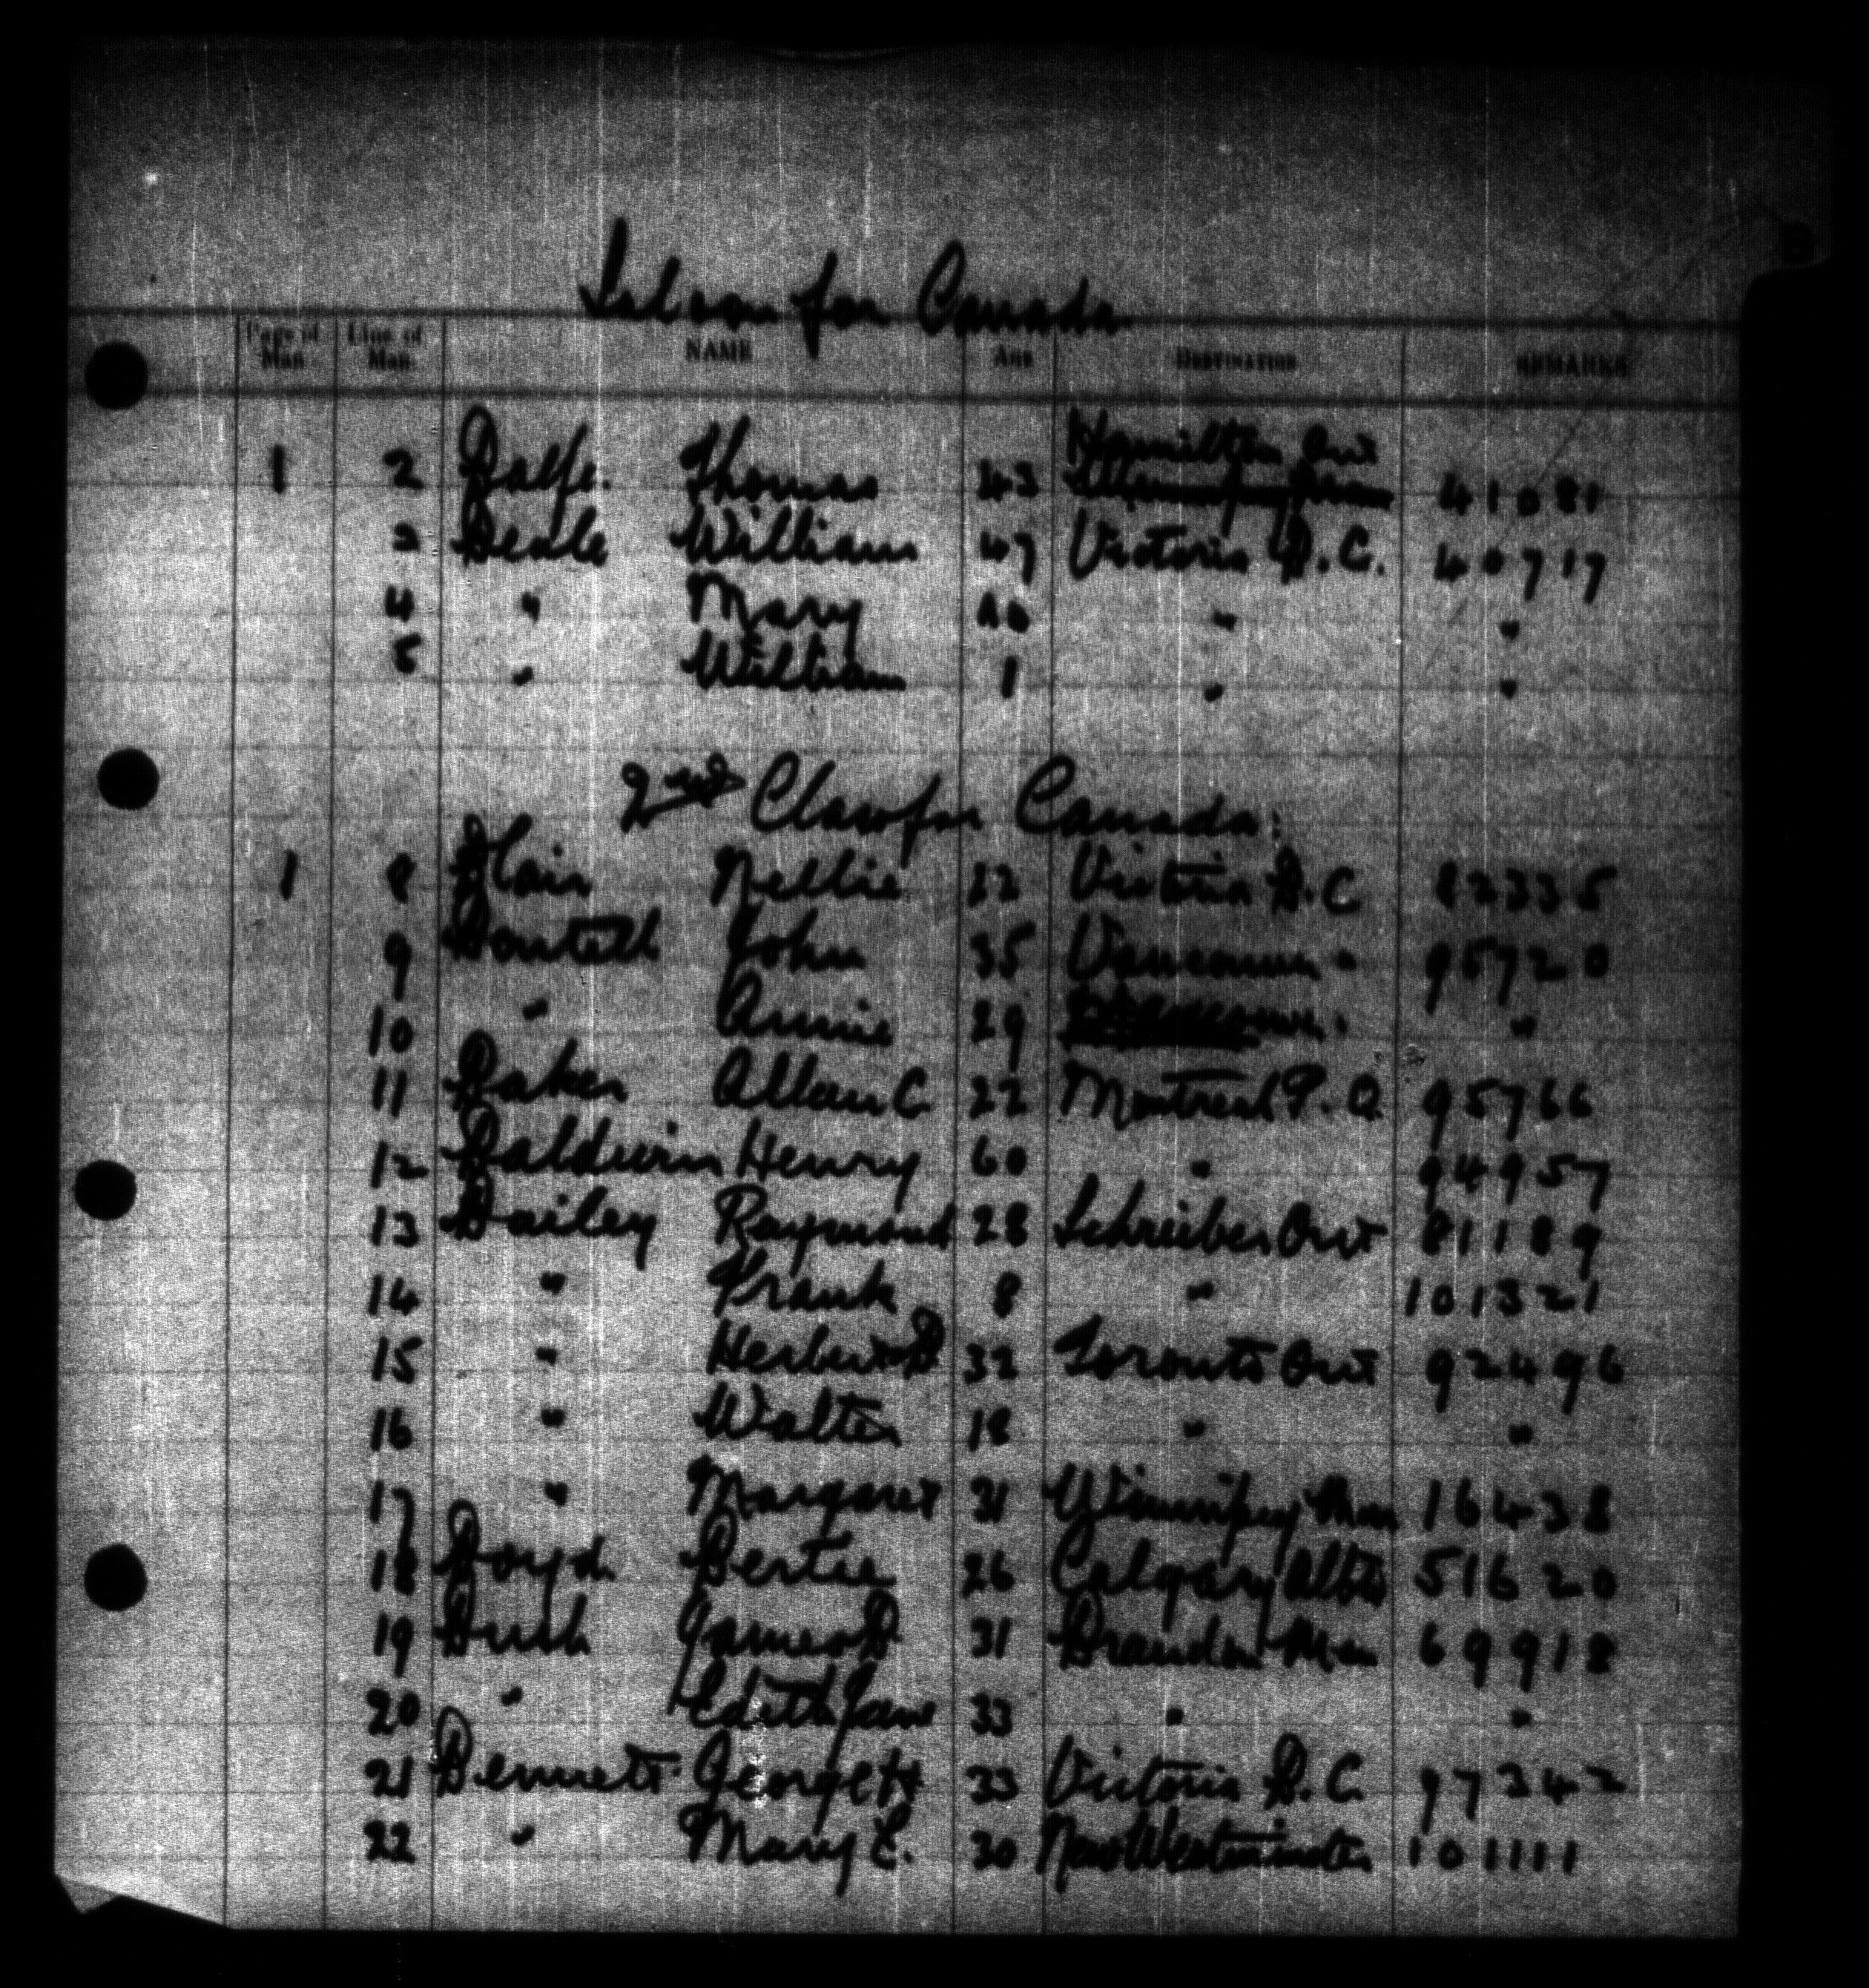 B
Saloon for Canada
Page of Man. Line of Man. NAME AGE DESTINATION REMARKS
Hamilton Ont
1 2 Balfe. Thomas 43 41081
3 Beale William 47 Victoria B.C. 40717
4 " Mary 40 " "
5 " William 1 " "
2nd Class for Canada:
1 8 Blair Nellie 22 Victoria B.C 82335
9 John 35 Vancouver " 95720
10 " Annie 29 "
11 Baker Allan C 22 Montreal P.Q. 95766
12 Baldwin Henry 60 " 94957
13 Bailey Raymond 28 Schreiber Ont 81189
14 " Frank 8 " 101321
15 " Herbert B 32 Toronto Ont 92496
16 " Walter 18 " "
17 " Margaret 31 Winnipeg Man 16438
18 Boyd Bertie 26 Calgary Alta 51620
19 Bush James B 31 Brandon Man 69918
20 " Edith Jane 33 " "
21 Bennett George H 33 Victoria B.C. 97342
22 " Mary E. 30 New Westminster 101111